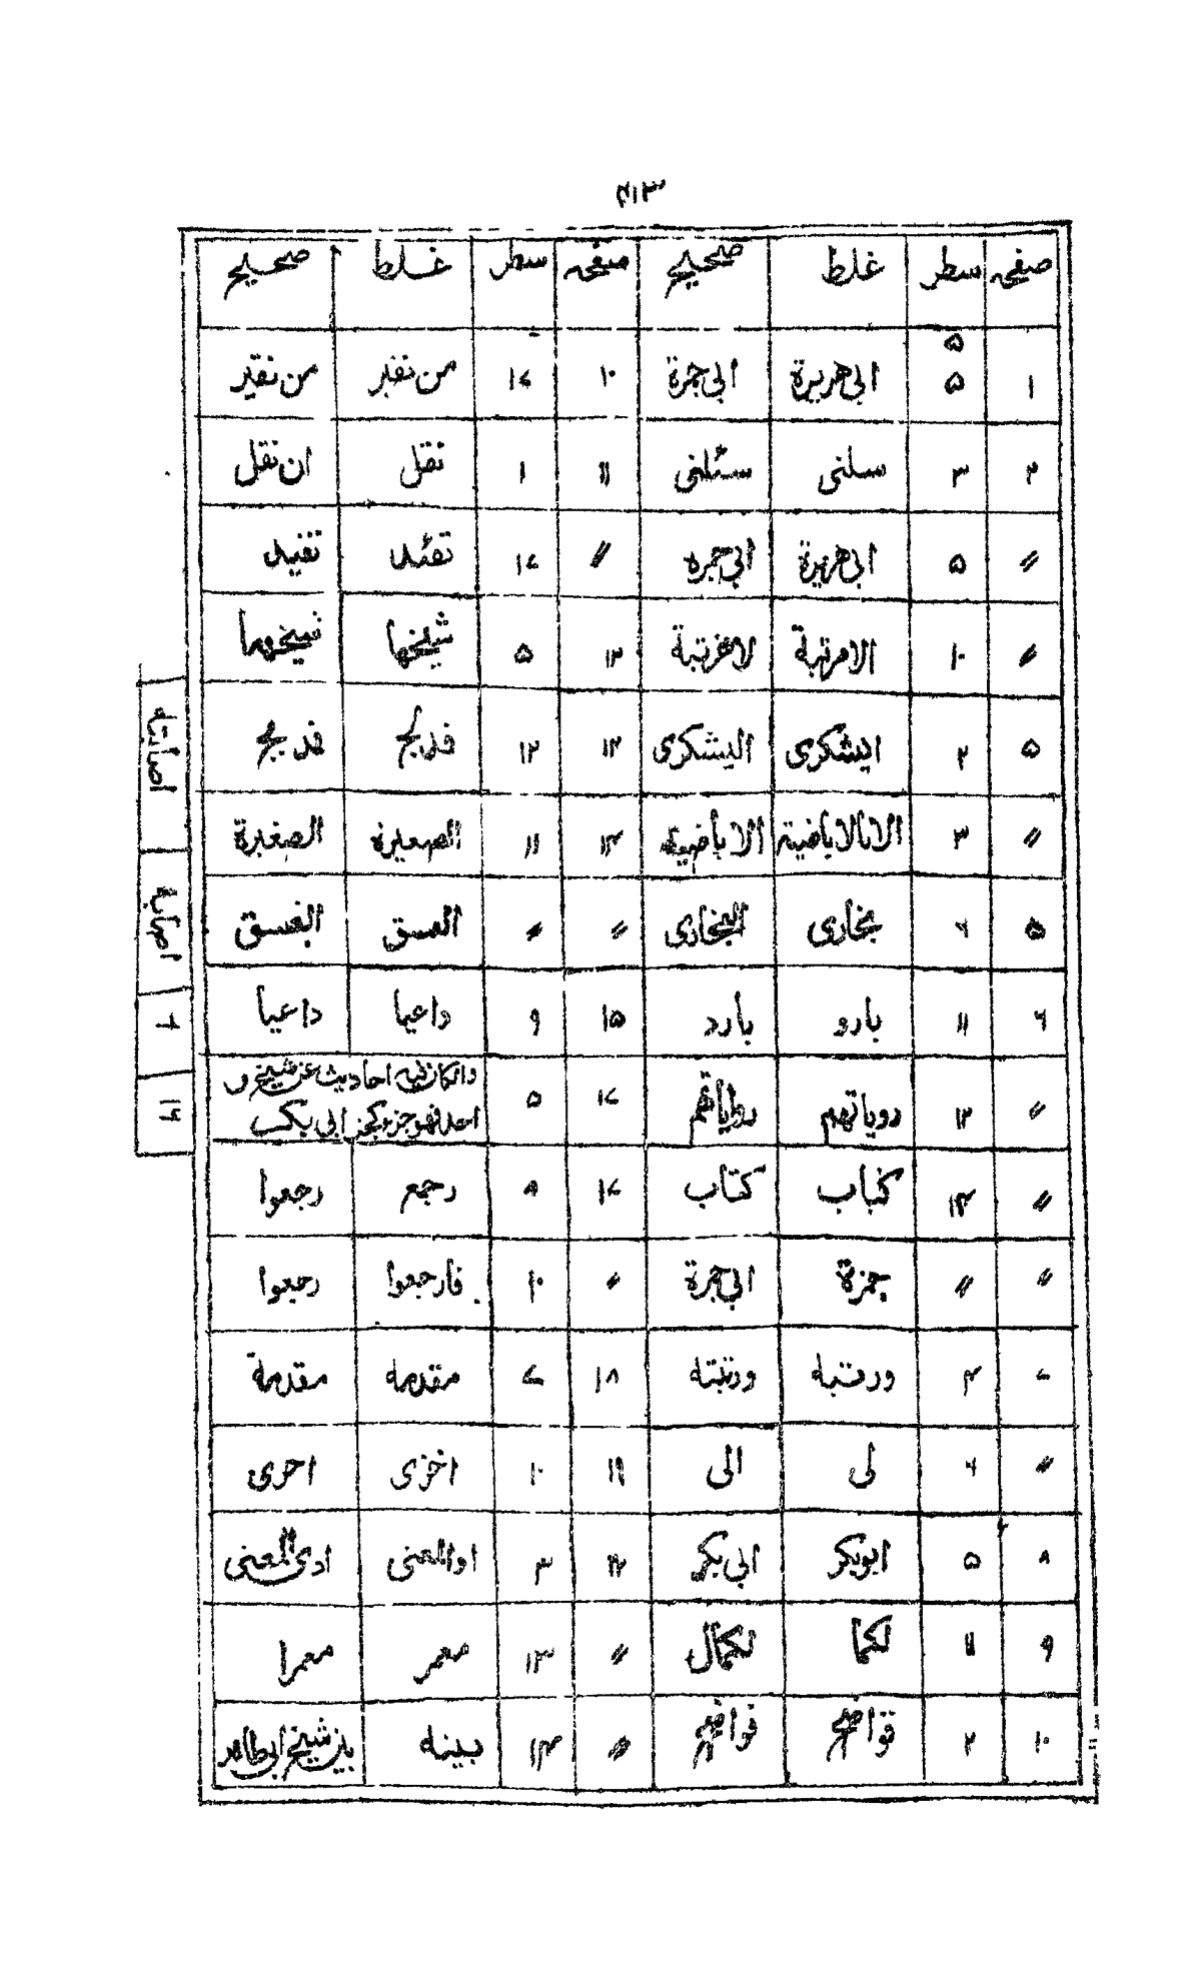 ۴۱۳
صفحہ سطر غلط صحیح صفحہ سطر غلط صحیح
۵
۱ ۵ ابی هریرة ابی جمرة ۱۰ ۱۷ من نفبر من نقیر
۲ ۳ سلنی سئلنی ۱۱ ۱ نقل ان نقل
〃 ۵ ابی هریرة ابی جمره 〃 ۱۷ تفئد تفنید
〃 ۱۰ الامرتبة لاغرتبة ۱۲ ۵ شیخها شیخهما
۵ ۲ ایشکری الیشکری ۱۲ ۱۲ فدلج فدبج
〃 ۳ الانالاباضیته الاباضیة ۱۴ ۱۱ الصعیرة الصغیرة
۵ ۶ بخاری البخاری 〃 〃 العسق الفسق
۶ ۱۱ بارو بارد ۱۵ ۹ داعیا داعیا
〃 ۱۲ دویاتهم روایاتهم ۱۷ ۵ وانکان فیه احادیث عن شیخ
احد فهو جزء کجز ابی بکر
〃 ۱۴ کباب کتاب ۱۷ ۸ رجع رجعوا
〃 〃 جمزة ابی جمرة 〃 ۱۰ فارجعوا رجعوا
۷ ۴ ورتبه ورتبته ۱۸ ۷ مقدمه مقدمة
〃 ۶ لی الی ۱۹ ۱۰ اخزی احری
۸ ۵ ابوبکر ابی بکر ۳ اوالمعنی ادی المعنی
۹ ۱۱ لکما لکمال 〃 ۱۳ معمر معمرا
۱۰ ۲ قواضح فواضح 〃 ۱۴ بینه بین شیخ ابی طاهر
۱۶ ۲ اصابة اصابته